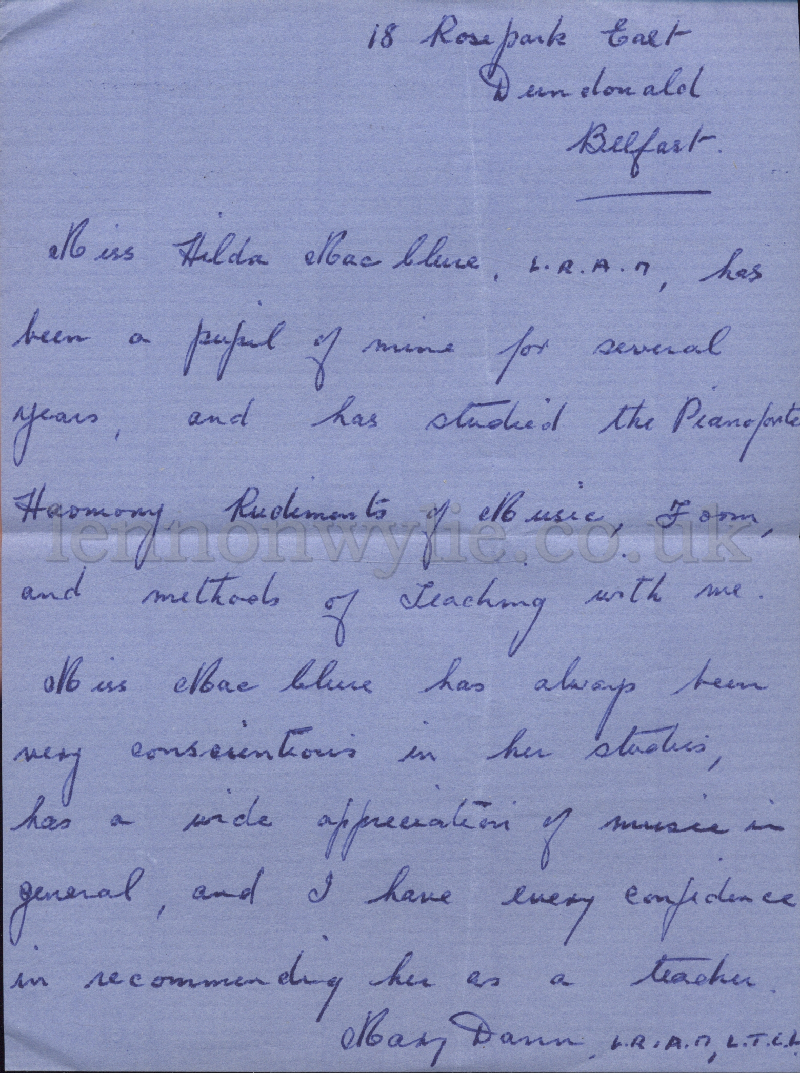 18 Rosepark East
Dundonald
Belfast.
Miss Hilda MacClure, L.R.A.M, has
been a pupil of mine for several
years, and has studied the Pianoforte
Harmony Rudiments of Music, Form,
lennonwylie.co.uk
and methods of Teaching with me.
Miss MacClure has always been
very conscientious in her studies,
has a wide appreciation of music in
general, and I have every confidence
in recommending her as a teacher.
Mary Dann, L.R.A.M, L.T.C.L